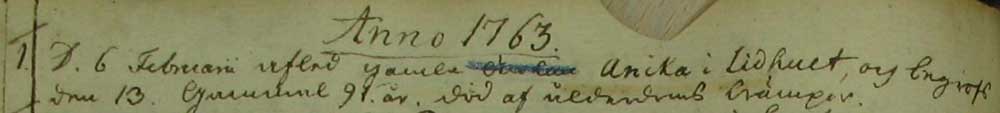 Anno 1763.
1. D. 6 Februarii afled gamla Anika i Lidhuet, og begrofs
den 13. Gammal 91. år. död af ålderdoms krämpor.